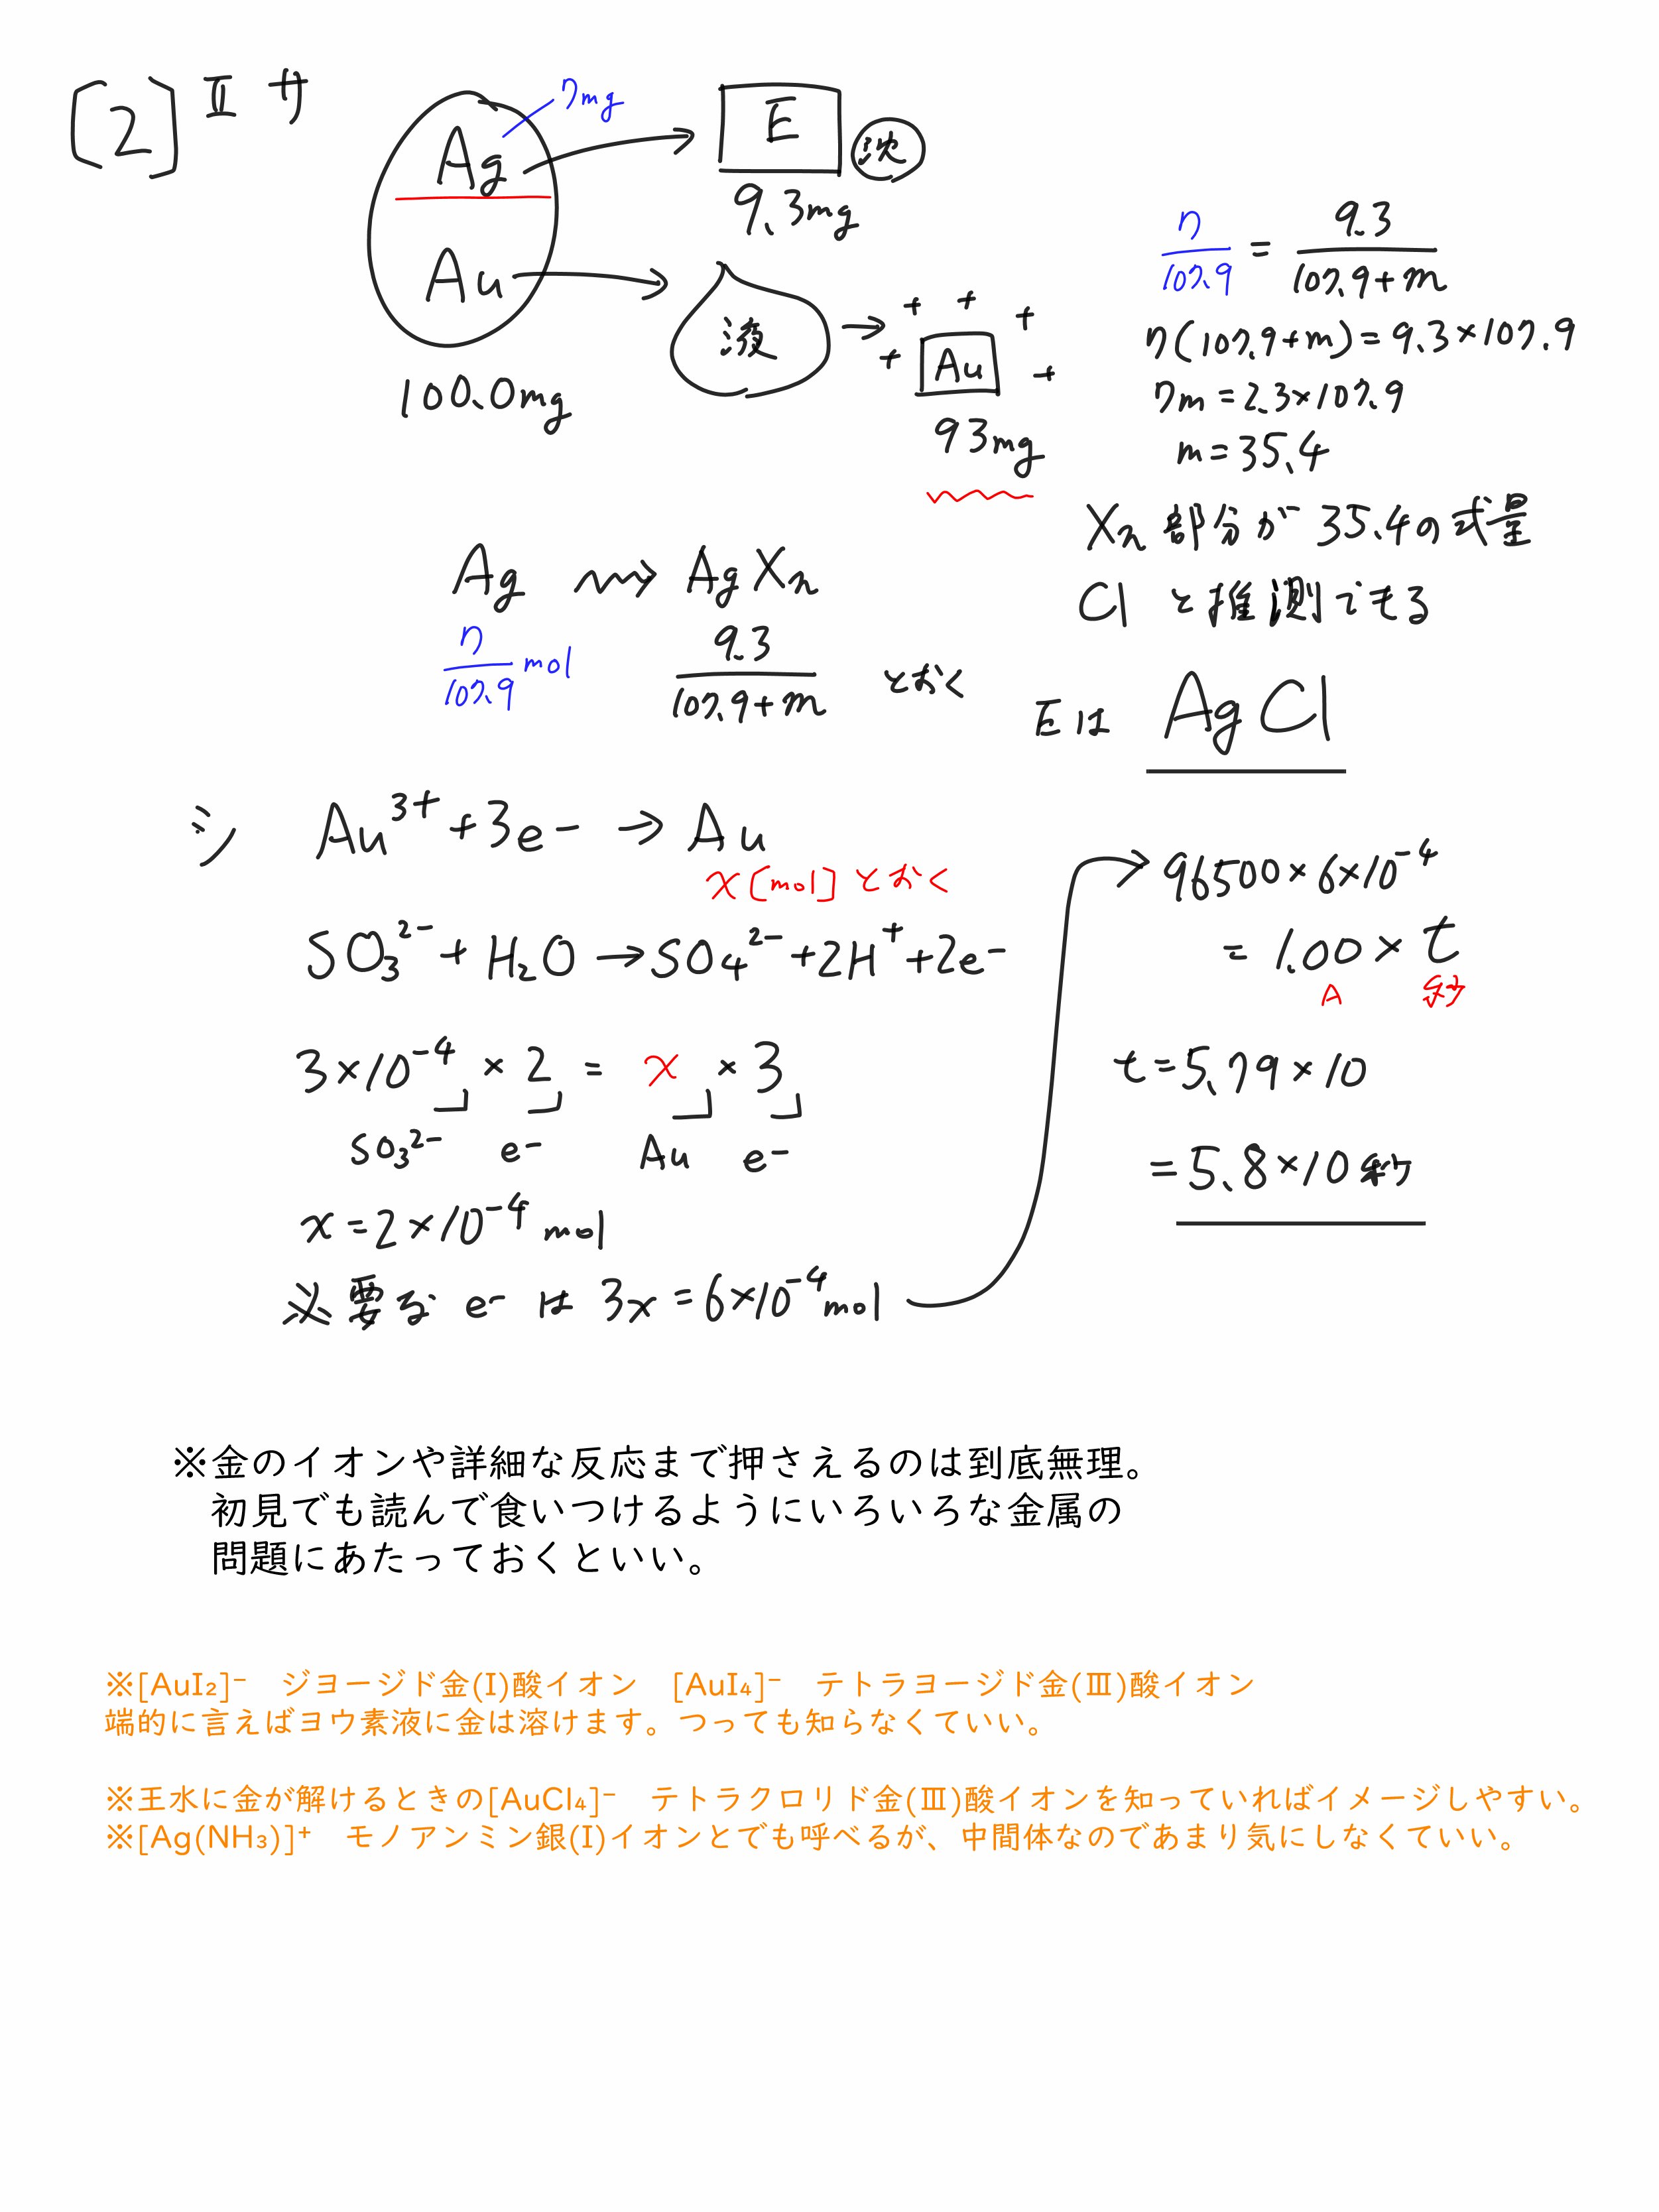 [2] Ⅱ サ
Ag 7mg
Au
100.0mg
E 沈
9.3mg
液
+ + + + +
Au
93mg
Ag → AgXn
7/107.9 mol 9.3/(107.9+m) とおく
7/107.9 = 9.3/(107.9+m)
7(107.9+m)=9.3×107.9
7m=2.3×107.9
m=35.4
Xn部分が35.4の式量
Clと推測できる
Eは AgCl
シ Au³⁺+3e- → Au
x[mol]とおく
SO₃²⁻+H₂O→SO₄²⁻+2H⁺+2e-
3×10⁻⁴ × 2 = x × 3
SO₃²⁻ e- Au e-
x=2×10⁻⁴ mol
※要るe-は3x=6×10⁻⁴mol
→96500×6×10⁻⁴
=1.00×t
A 秒
t=5.79×10
=5.8×10秒
※金のイオンや詳細な反応まで押さえるのは到底無理。
初見でも読んで食いつけるようにいろいろな金属の
問題にあたっておくといい。
※[AuI₂]⁻　ジヨージド金(Ⅰ)酸イオン　[AuI₄]⁻　テトラヨージド金(Ⅲ)酸イオン
端的に言えばヨウ素液に金は溶けます。つっても知らなくていい。
※王水に金が解けるときの[AuCl₄]⁻　テトラクロリド金(Ⅲ)酸イオンを知っていればイメージしやすい。
※[Ag(NH₃)]⁺　モノアンミン銀(Ⅰ)イオンとでも呼べるが、中間体なのであまり気にしなくていい。